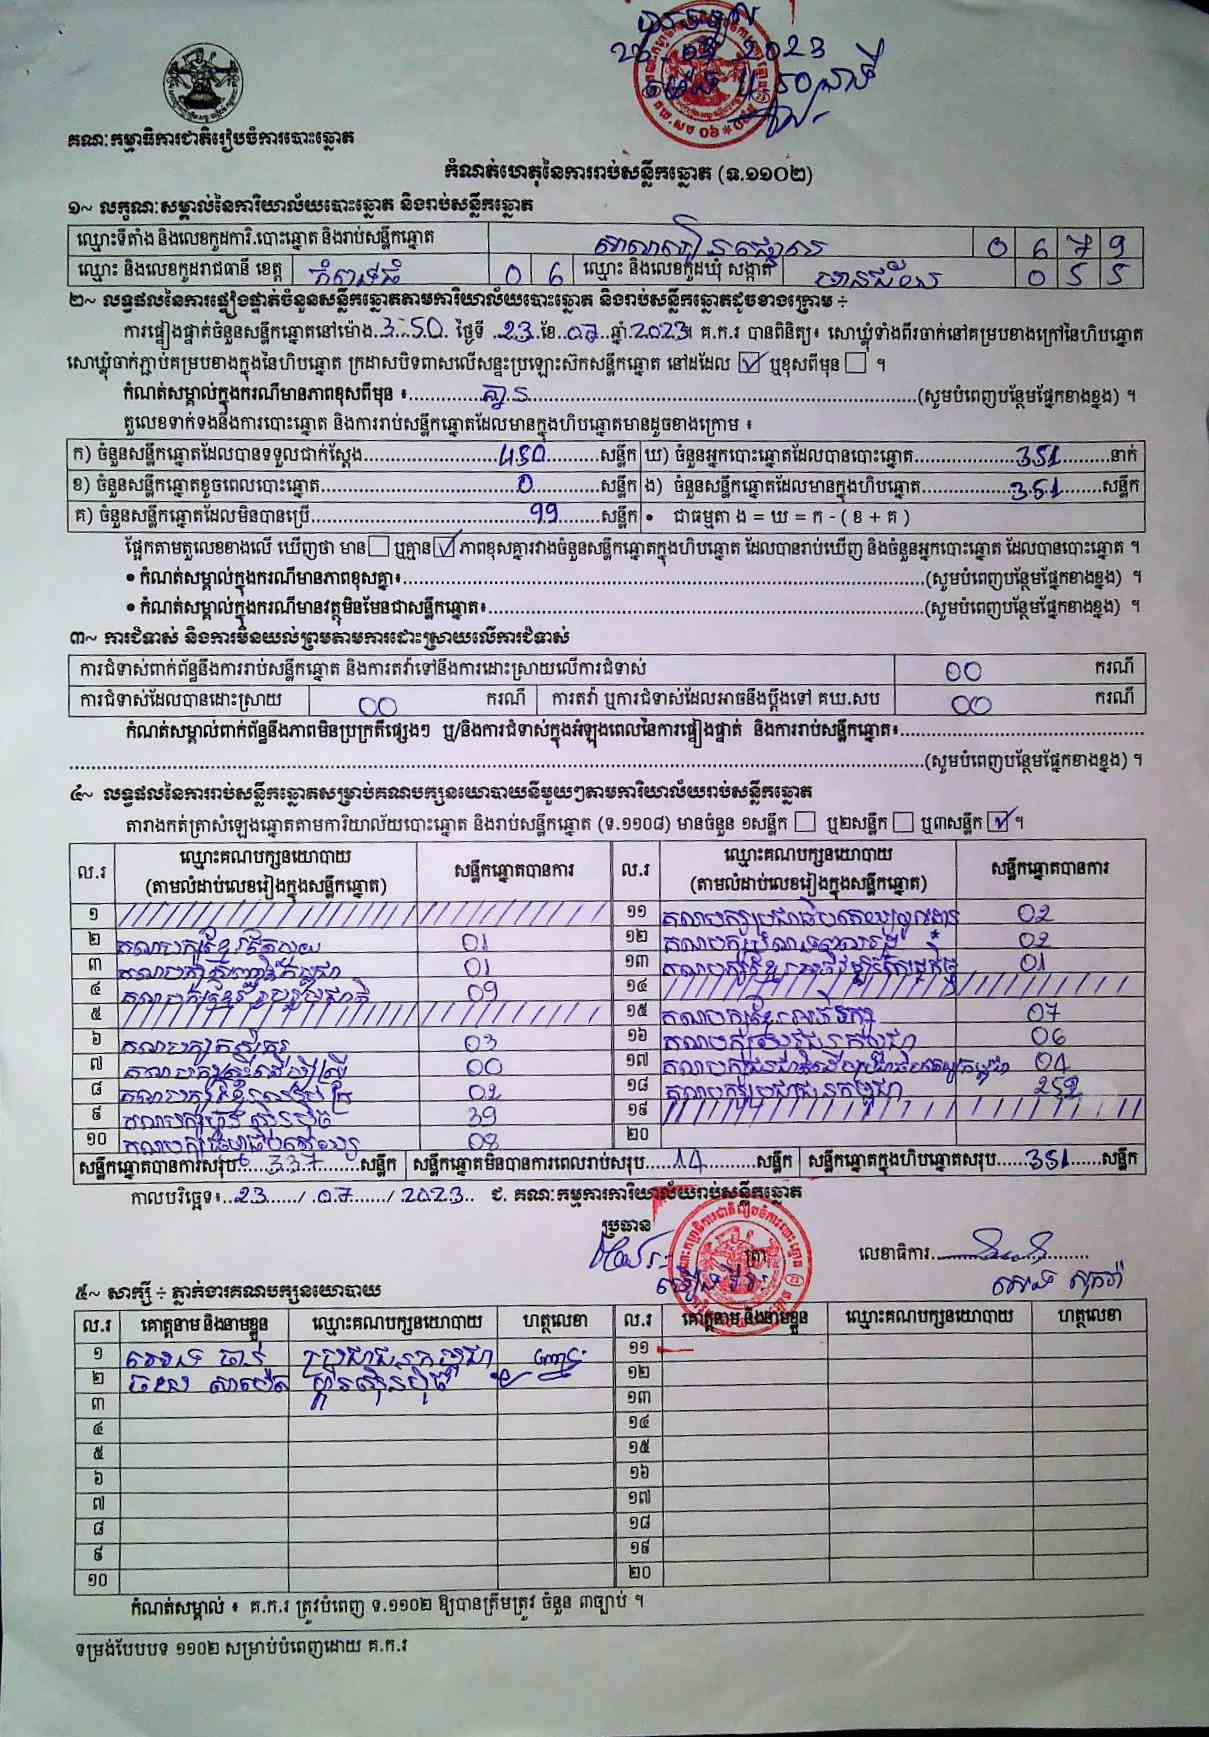 2023
គណៈកម្មាធិការជាតិរៀបចំការបោះឆ្នោត
កំណត់ហេតុនៃការរាប់សន្លឹកឆ្នោត (ទ.១១០២)
១~ លក្ខណៈសម្គាល់នៃការិយាល័យបោះឆ្នោត និងរាប់សន្លឹកឆ្នោត
ឈ្មោះទីតាំង និងលេខកូដការិ.បោះឆ្នោត និងរាប់សន្លឹកឆ្នោត 0 6 7 9
ឈ្មោះ និងលេខកូដរាជធានី ខេត្ត កំពង់ធំ 0 6 ឈ្មោះ និងលេខកូដឃុំ សង្កាត់ មានជ័យ 0 5 5
២~ លទ្ធផលនៃការផ្ទៀងផ្ទាត់ចំនួនសន្លឹកឆ្នោតតាមការិយាល័យបោះឆ្នោត និងរាប់សន្លឹកឆ្នោតដូចខាងក្រោម ÷
ការផ្ទៀងផ្ទាត់ចំនួនសន្លឹកឆ្នោតនៅម៉ោង 3:50 ថ្ងៃទី 23 ខែ 07 ឆ្នាំ 2023 ។ គ.ក.រ បានពិនិត្យ៖ សោឃ្លុំទាំងពីរចាក់នៅគម្របខាងក្រៅនៃហិបឆ្នោត
សោឃ្លុំចាក់ភ្ជាប់គម្របខាងក្នុងនៃហិបឆ្នោត ក្រដាសបិទពាសលើសន្ទះប្រឡោះស៊កសន្លឹកឆ្នោត នៅដដែល ☑ ឬខុសពីមុន ☐ ។
កំណត់សម្គាល់ក្នុងករណីមានភាពខុសពីមុន ៖ គ្មាន (សូមបំពេញបន្ថែមផ្នែកខាងខ្នង) ។
តួលេខទាក់ទងនឹងការបោះឆ្នោត និងការរាប់សន្លឹកឆ្នោតដែលមានក្នុងហិបឆ្នោតមានដូចខាងក្រោម ៖
ក) ចំនួនសន្លឹកឆ្នោតដែលបានទទួលជាក់ស្តែង 450 សន្លឹក ឃ) ចំនួនអ្នកបោះឆ្នោតដែលបានបោះឆ្នោត 351 នាក់
ខ) ចំនួនសន្លឹកឆ្នោតខូចពេលបោះឆ្នោត 0 សន្លឹក ង) ចំនួនសន្លឹកឆ្នោតដែលមានក្នុងហិបឆ្នោត 351 សន្លឹក
គ) ចំនួនសន្លឹកឆ្នោតដែលមិនបានប្រើ 99 សន្លឹក • ជាធម្មតា ង = ឃ = ក - ( ខ + គ )
ផ្អែកតាមតួលេខខាងលើ ឃើញថា មាន ☐ ឬគ្មាន ☑ ភាពខុសគ្នារវាងចំនួនសន្លឹកឆ្នោតក្នុងហិបឆ្នោត ដែលបានរាប់ឃើញ និងចំនួនអ្នកបោះឆ្នោត ដែលបានបោះឆ្នោត ។
• កំណត់សម្គាល់ក្នុងករណីមានភាពខុសគ្នា៖ (សូមបំពេញបន្ថែមផ្នែកខាងខ្នង) ។
• កំណត់សម្គាល់ក្នុងករណីមានវត្ថុមិនមែនជាសន្លឹកឆ្នោត៖ (សូមបំពេញបន្ថែមផ្នែកខាងខ្នង) ។
៣~ ការជំទាស់ និងការមិនយល់ព្រមតាមការដោះស្រាយលើការជំទាស់
ការជំទាស់ពាក់ព័ន្ធនឹងការរាប់សន្លឹកឆ្នោត និងការតវ៉ាទៅនឹងការដោះស្រាយលើការជំទាស់ 00 ករណី
ការជំទាស់ដែលបានដោះស្រាយ 00 ករណី ការតវ៉ា ឬការជំទាស់ដែលអាចនឹងប្តឹងទៅ គឃ.សប 00 ករណី
កំណត់សម្គាល់ពាក់ព័ន្ធនឹងភាពមិនប្រក្រតីផ្សេងៗ ឬ/និងការជំទាស់ក្នុងអំឡុងពេលនៃការផ្ទៀងផ្ទាត់ និងការរាប់សន្លឹកឆ្នោត៖
(សូមបំពេញបន្ថែមផ្នែកខាងខ្នង) ។
៤~ លទ្ធផលនៃការរាប់សន្លឹកឆ្នោតសម្រាប់គណបក្សនយោបាយនីមួយៗតាមការិយាល័យរាប់សន្លឹកឆ្នោត
តារាងកត់ត្រាសំឡេងឆ្នោតតាមការិយាល័យបោះឆ្នោត និងរាប់សន្លឹកឆ្នោត (ទ.១១០៨) មានចំនួន ១សន្លឹក ☐ ឬ២សន្លឹក ☐ ឬ៣សន្លឹក ☑ ។
ល.រ ឈ្មោះគណបក្សនយោបាយ សន្លឹកឆ្នោតបានការ ល.រ ឈ្មោះគណបក្សនយោបាយ សន្លឹកឆ្នោតបានការ
(តាមលំដាប់លេខរៀងក្នុងសន្លឹកឆ្នោត) (តាមលំដាប់លេខរៀងក្នុងសន្លឹកឆ្នោត)
១ ១១ គណបក្សប្រជាធិបតេយ្យមូលដ្ឋាន 02
២ 01 ១២ 02
៣ 01 ១៣ 01
៤ គណបក្សខ្មែររួបរួមជាតិ 09 ១៤
៥ ១៥ 07
៦ 03 ១៦ 06
៧ 00 ១៧ 04
៨ 02 ១៨ គណបក្សប្រជាជនកម្ពុជា 252
៩ គណបក្សហ្វ៊ុនស៊ិនប៉ិច 39 ១៩
១០ 08 ២០
សន្លឹកឆ្នោតបានការសរុប 337 សន្លឹក សន្លឹកឆ្នោតមិនបានការពេលរាប់សរុប 14 សន្លឹក សន្លឹកឆ្នោតក្នុងហិបឆ្នោតសរុប 351 សន្លឹក
កាលបរិច្ឆេទ៖ 23 / 07 / 2023 ជ. គណៈកម្មការការិយាល័យរាប់សន្លឹកឆ្នោត
ប្រធាន
ត្រា លេខាធិការ
៥~ សាក្សី ÷ ភ្នាក់ងារគណបក្សនយោបាយ
ល.រ គោត្តនាម និងនាមខ្លួន ឈ្មោះគណបក្សនយោបាយ ហត្ថលេខា ល.រ គោត្តនាម និងនាមខ្លួន ឈ្មោះគណបក្សនយោបាយ ហត្ថលេខា
១ ប្រជាជនកម្ពុជា ១១
២ ហ្វ៊ុនស៊ិនប៉ិច ១២
៣ ១៣
៤ ១៤
៥ ១៥
៦ ១៦
៧ ១៧
៨ ១៨
៩ ១៩
១០ ២០
កំណត់សម្គាល់ ៖ គ.ក.រ ត្រូវបំពេញ ទ.១១០២ ឱ្យបានត្រឹមត្រូវ ចំនួន ៣ច្បាប់ ។
ទម្រង់បែបបទ ១១០២ សម្រាប់បំពេញដោយ គ.ក.រ